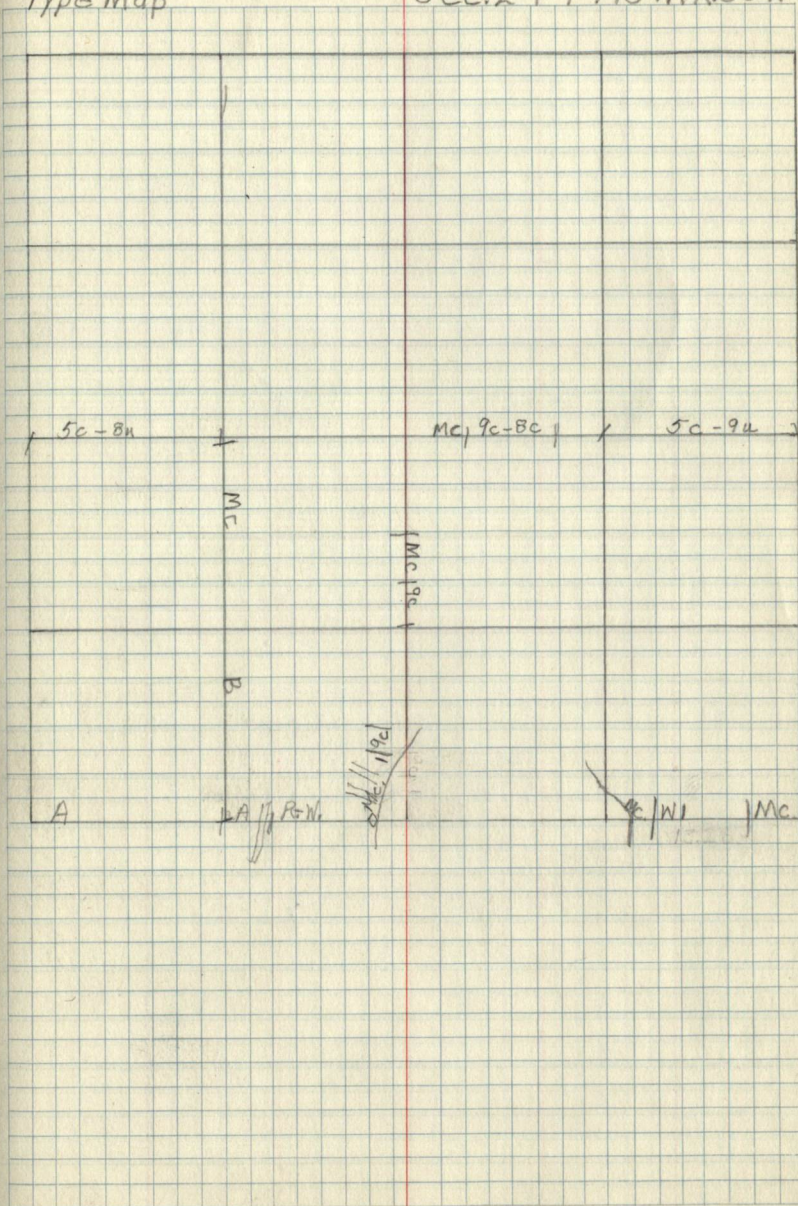 Type Map
5c-8u Mc 9c-8c 5c-9u
Mc
Mc 9c
B
9c
Mc
A A P.W. W1 Mc